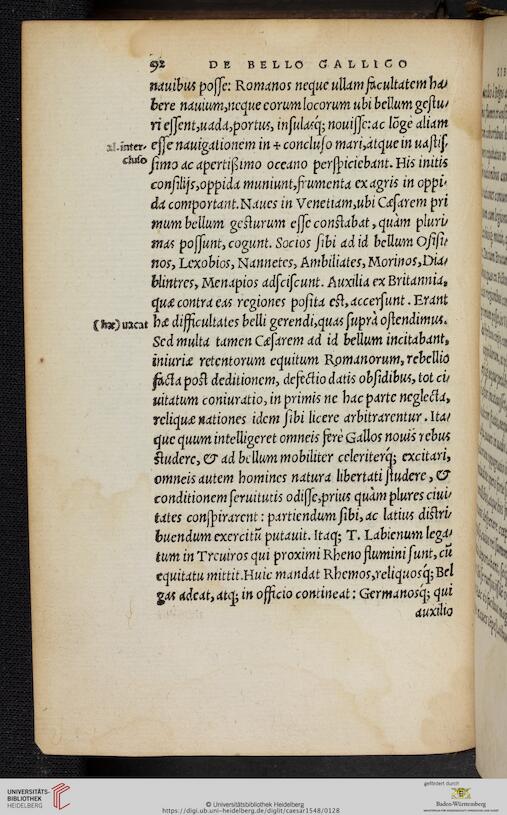 92 DE BELLO GALLICO
nauibus posse: Romanos neque ullam facultatem ha/
bere nauium, neque eorum locorum ubi bellum gestu/
ri essent, uada, portus, insulasq;: nouisse: ac lōge aliam
al. inter- esse nauigationem in + concluso mari, atque in uastis/
cluso simo ac apertißimo oceano perspiciebant. His initis
consilijs, oppida muniunt, frumenta ex agris in oppi/
da comportant. Naues in Venetiam, ubi Cæsarem pri
mum bellum gesturum esse constabat, quàm pluri/
mas possunt, cogunt. Socios sibi ad id bellum Osisi/
nos, Lexobios, Nannetes, Ambiliates, Morinos, Dia/
blintres, Menapios adsciscunt. Auxilia ex Britannia,
quæ contra eas regiones posita est, accersunt. Erant
(hæ) uacat hæ difficultates belli gerendi, quas suprà ostendimus.
Sed multa tamen Cæsarem ad id bellum incitabant,
iniuriæ retentorum equitum Romanorum, rebellio
facta post deditionem, defectio datis obsidibus, tot ci/
uitatum coniuratio, in primis ne hac parte neglecta,
reliquæ nationes idem sibi licere arbitrarentur. Ita/
que quum intelligeret omneis ferè Gallos nouis rebus
studere, & ad bellum mobiliter celeriterq; excitari,
omneis autem homines natura libertati studere, &
conditionem seruitutis odisse, prius quàm plures ciui/
tates conspirarent: partiendum sibi, ac latius distri/
buendum exercitū putauit. Itaq; T. Labienum lega/
tum in Treuiros qui proximi Rheno flumini sunt, cū
equitatu mittit. Huic mandat Rhemos, reliquosq; Bel
gas adeat, atq; in officio contineat: Germanosq; qui
auxilio
UNIVERSITÄTS-
BIBLIOTHEK
HEIDELBERG
© Universitätsbibliothek Heidelberg
https://digi.ub.uni-heidelberg.de/diglit/caesar1548/0128
gefördert durch
Baden-Württemberg